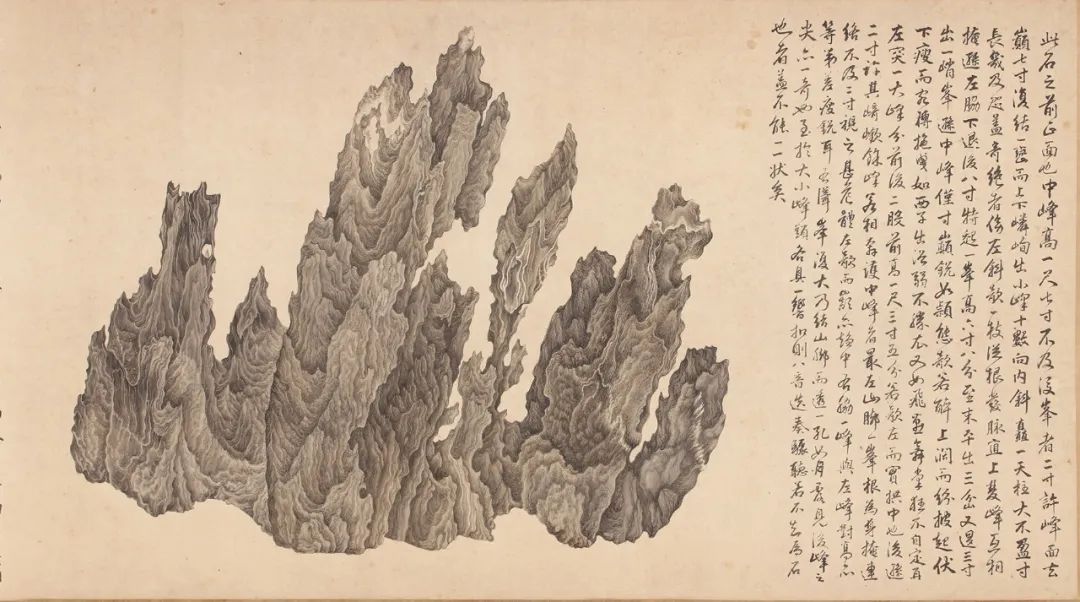 此石之前正面也中峰高一尺七寸不及後峯者二寸許峰面去
巔七寸復結一巒而上下嶙峋出小峰十數向内斜矗一天柱大不盈寸
長幾及咫盖奇絕者傍左斜欹一枝從根發脉直上雙峰互相
掩遜左脇下退後八寸特起一峯高六寸八分至末平出三分又過三寸
出一峭峯遜中峰僅寸巔銳如穎態欹若醉上闊而紛披起伏
下瘦而宛轉拖曳如西子出浴弱不勝衣又如飛燕舞掌狂不自定再
左突一大峰分前後二股前高一尺三寸五分若欹左而實拱中也後遜
二寸許其崎嶔餘峰若相護中峰者最左山脚一峯根為身掩連
絡不及二寸視之甚危體左欹而巔亦趨中右脇一峰與左峰對高亦
等第差瘦銳耳右障峯復大乃結山脚而透一孔如月露見後峰之
尖亦一奇也至於大小峰頭各具一響扣則八音迭奏驟聽若不為石
也者蓋不能二狀矣